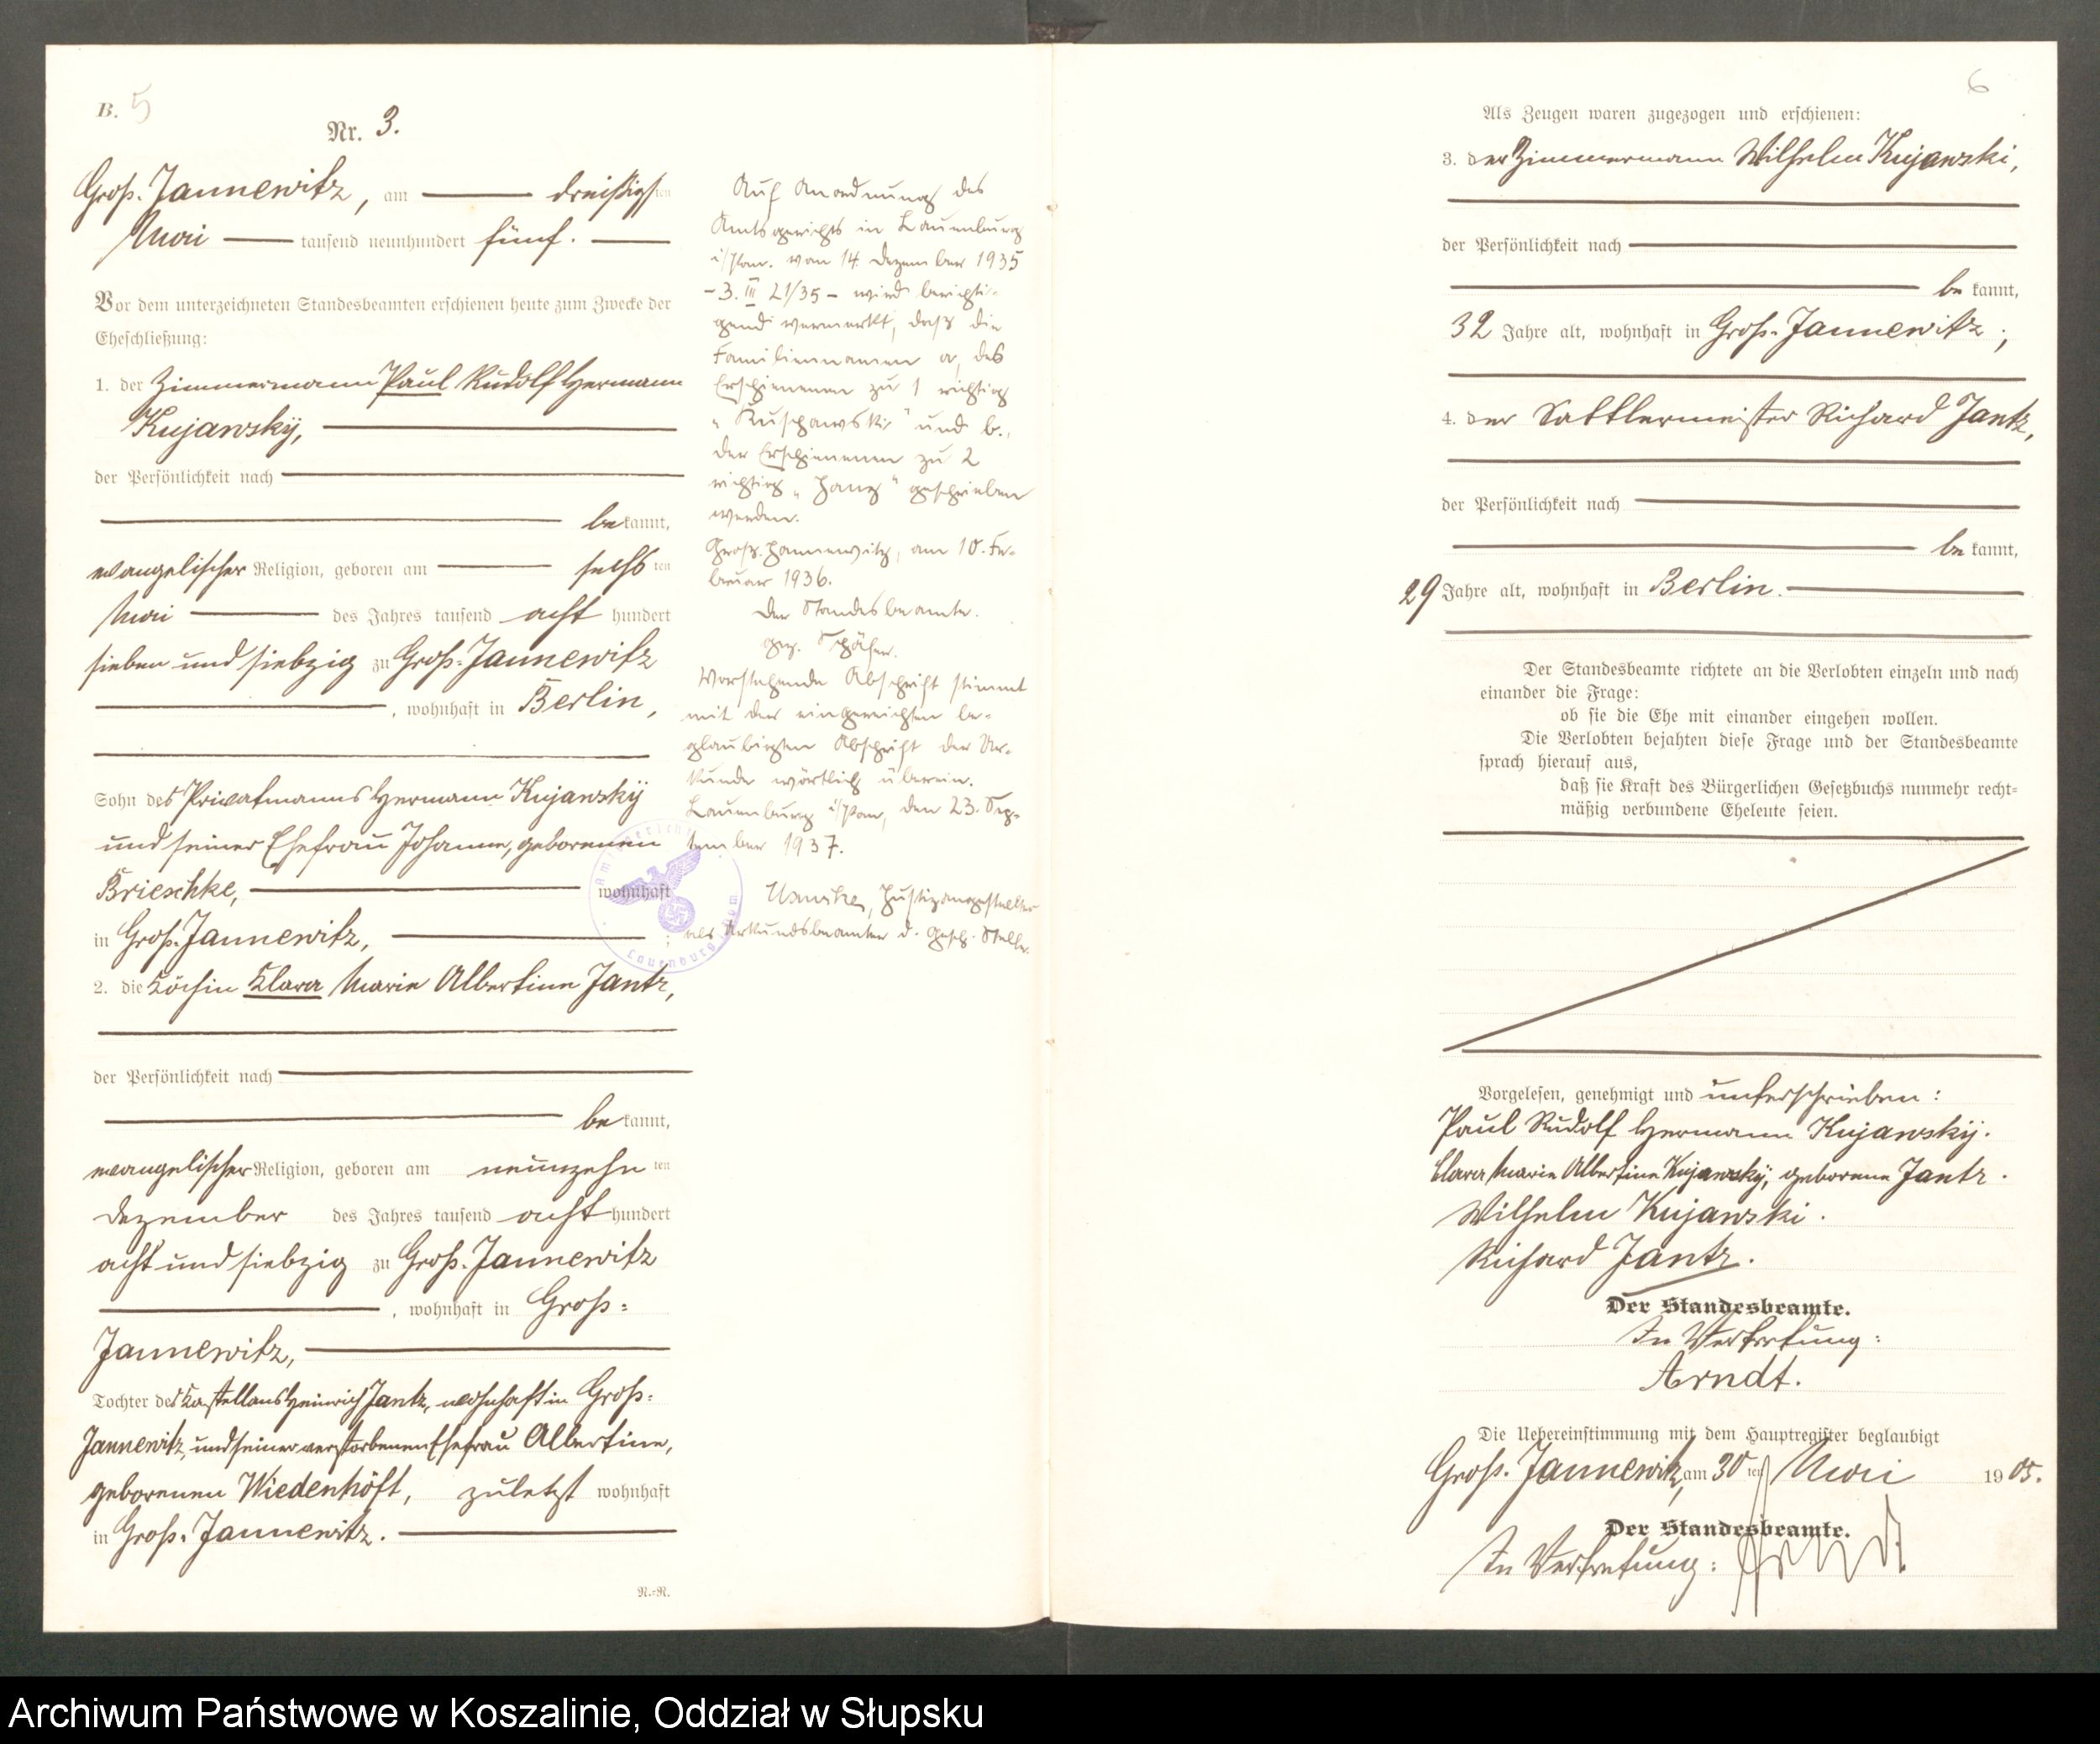 B. 5
Nr. 3.
Groß-Jannewitz, am dreißigsten
Mai tausend neunhundert fünf.
Vor dem unterzeichneten Standesbeamten erschienen heute zum Zwecke der
Eheschließung:
1. der Zimmermann Paul Rudolf Hermann
Kujawsky,
der Persönlichkeit nach
bekannt,
evangelischer Religion, geboren am sechsten
Mai des Jahres tausend acht hundert
sieben und siebzig zu Groß-Jannewitz
, wohnhaft in Berlin,
Sohn des Privatmanns Hermann Kujawsky
und seiner Ehefrau Johanne, geborenen
Brieschke, wohnhaft
in Groß-Jannewitz, ;
2. die Köchin Clara Marie Albertine Jantz,
der Persönlichkeit nach
bekannt,
evangelischer Religion, geboren am neunzehnten
Dezember des Jahres tausend acht hundert
acht und siebzig zu Groß-Jannewitz
, wohnhaft in Groß-
Jannewitz,
Tochter des Kastellans Heinrich Jantz, wohnhaft in Groß-
Jannewitz, und seiner verstorbenen Ehefrau Albertine,
geborenen Wiedenhöft, zuletzt wohnhaft
in Groß-Jannewitz.
N.=N.
Auf Anordnung des
Amtsgerichts in Lauenburg
i/Pom. vom 14. Dezember 1935
– 3. III 21/35 – wird berichti-
gend vermerkt, daß die
Familiennamen a, des
Erschienenen zu 1 richtig
„Kuschawski" und b.,
der Erschienenen zu 2
richtig „Janz" geschrieben
werden.
Groß. Jannewitz, am 10. Fe-
bruar 1936.
Der Standesbeamte.
gez. Schäfer.
Vorstehende Abschrift stimmt
mit der eingereichten be-
glaubigten Abschrift der Ur-
kunde wörtlich überein.
Lauenburg i/Pom, den 23. Sep-
tember 1937.
Justizangestellter
als Urkundsbeamter d. Gesch. Stelle.
Amtsgericht
Lauenburg Pom
6
Als Zeugen waren zugezogen und erschienen:
3. der Zimmermann Wilhelm Kujawski,
der Persönlichkeit nach
bekannt,
32 Jahre alt, wohnhaft in Groß-Jannewitz;
4. der Sattlermeister Richard Jantz,
der Persönlichkeit nach
bekannt,
29 Jahre alt, wohnhaft in Berlin.
Der Standesbeamte richtete an die Verlobten einzeln und nach
einander die Frage:
ob sie die Ehe mit einander eingehen wollen.
Die Verlobten bejahten diese Frage und der Standesbeamte
sprach hierauf aus,
daß sie Kraft des Bürgerlichen Gesetzbuchs nunmehr recht=
mäßig verbundene Eheleute seien.
Vorgelesen, genehmigt und unterschrieben:
Paul Rudolf Hermann Kujawsky.
Clara Marie Albertine Kujawsky, geborene Jantz.
Wilhelm Kujawski.
Richard Jantz.
Der Standesbeamte.
In Vertretung:
Arndt.
Die Uebereinstimmung mit dem Hauptregister beglaubigt
Groß-Jannewitz, am 30ten Mai 1905.
Der Standesbeamte.
In Vertretung: Arndt.
Archiwum Państwowe w Koszalinie, Oddział w Słupsku